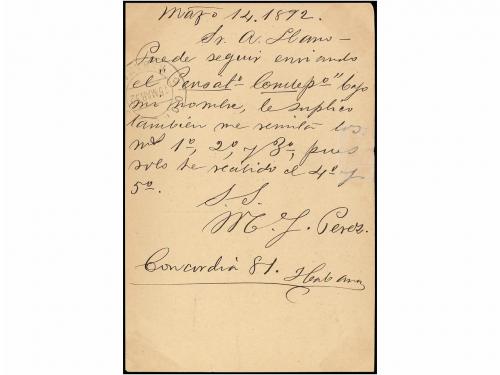 Marzo 14. 1892.
Sr. A. Llano—
Puede seguir enviando
el "Pensatº Contepº" bajo
mi nombre, le suplico
también me remita los
nºs 1º, 2º, y 3º, pues
solo he recibido el 4º y
5º.
S. S.
M. J. Perez.
Concordia 81. Habana